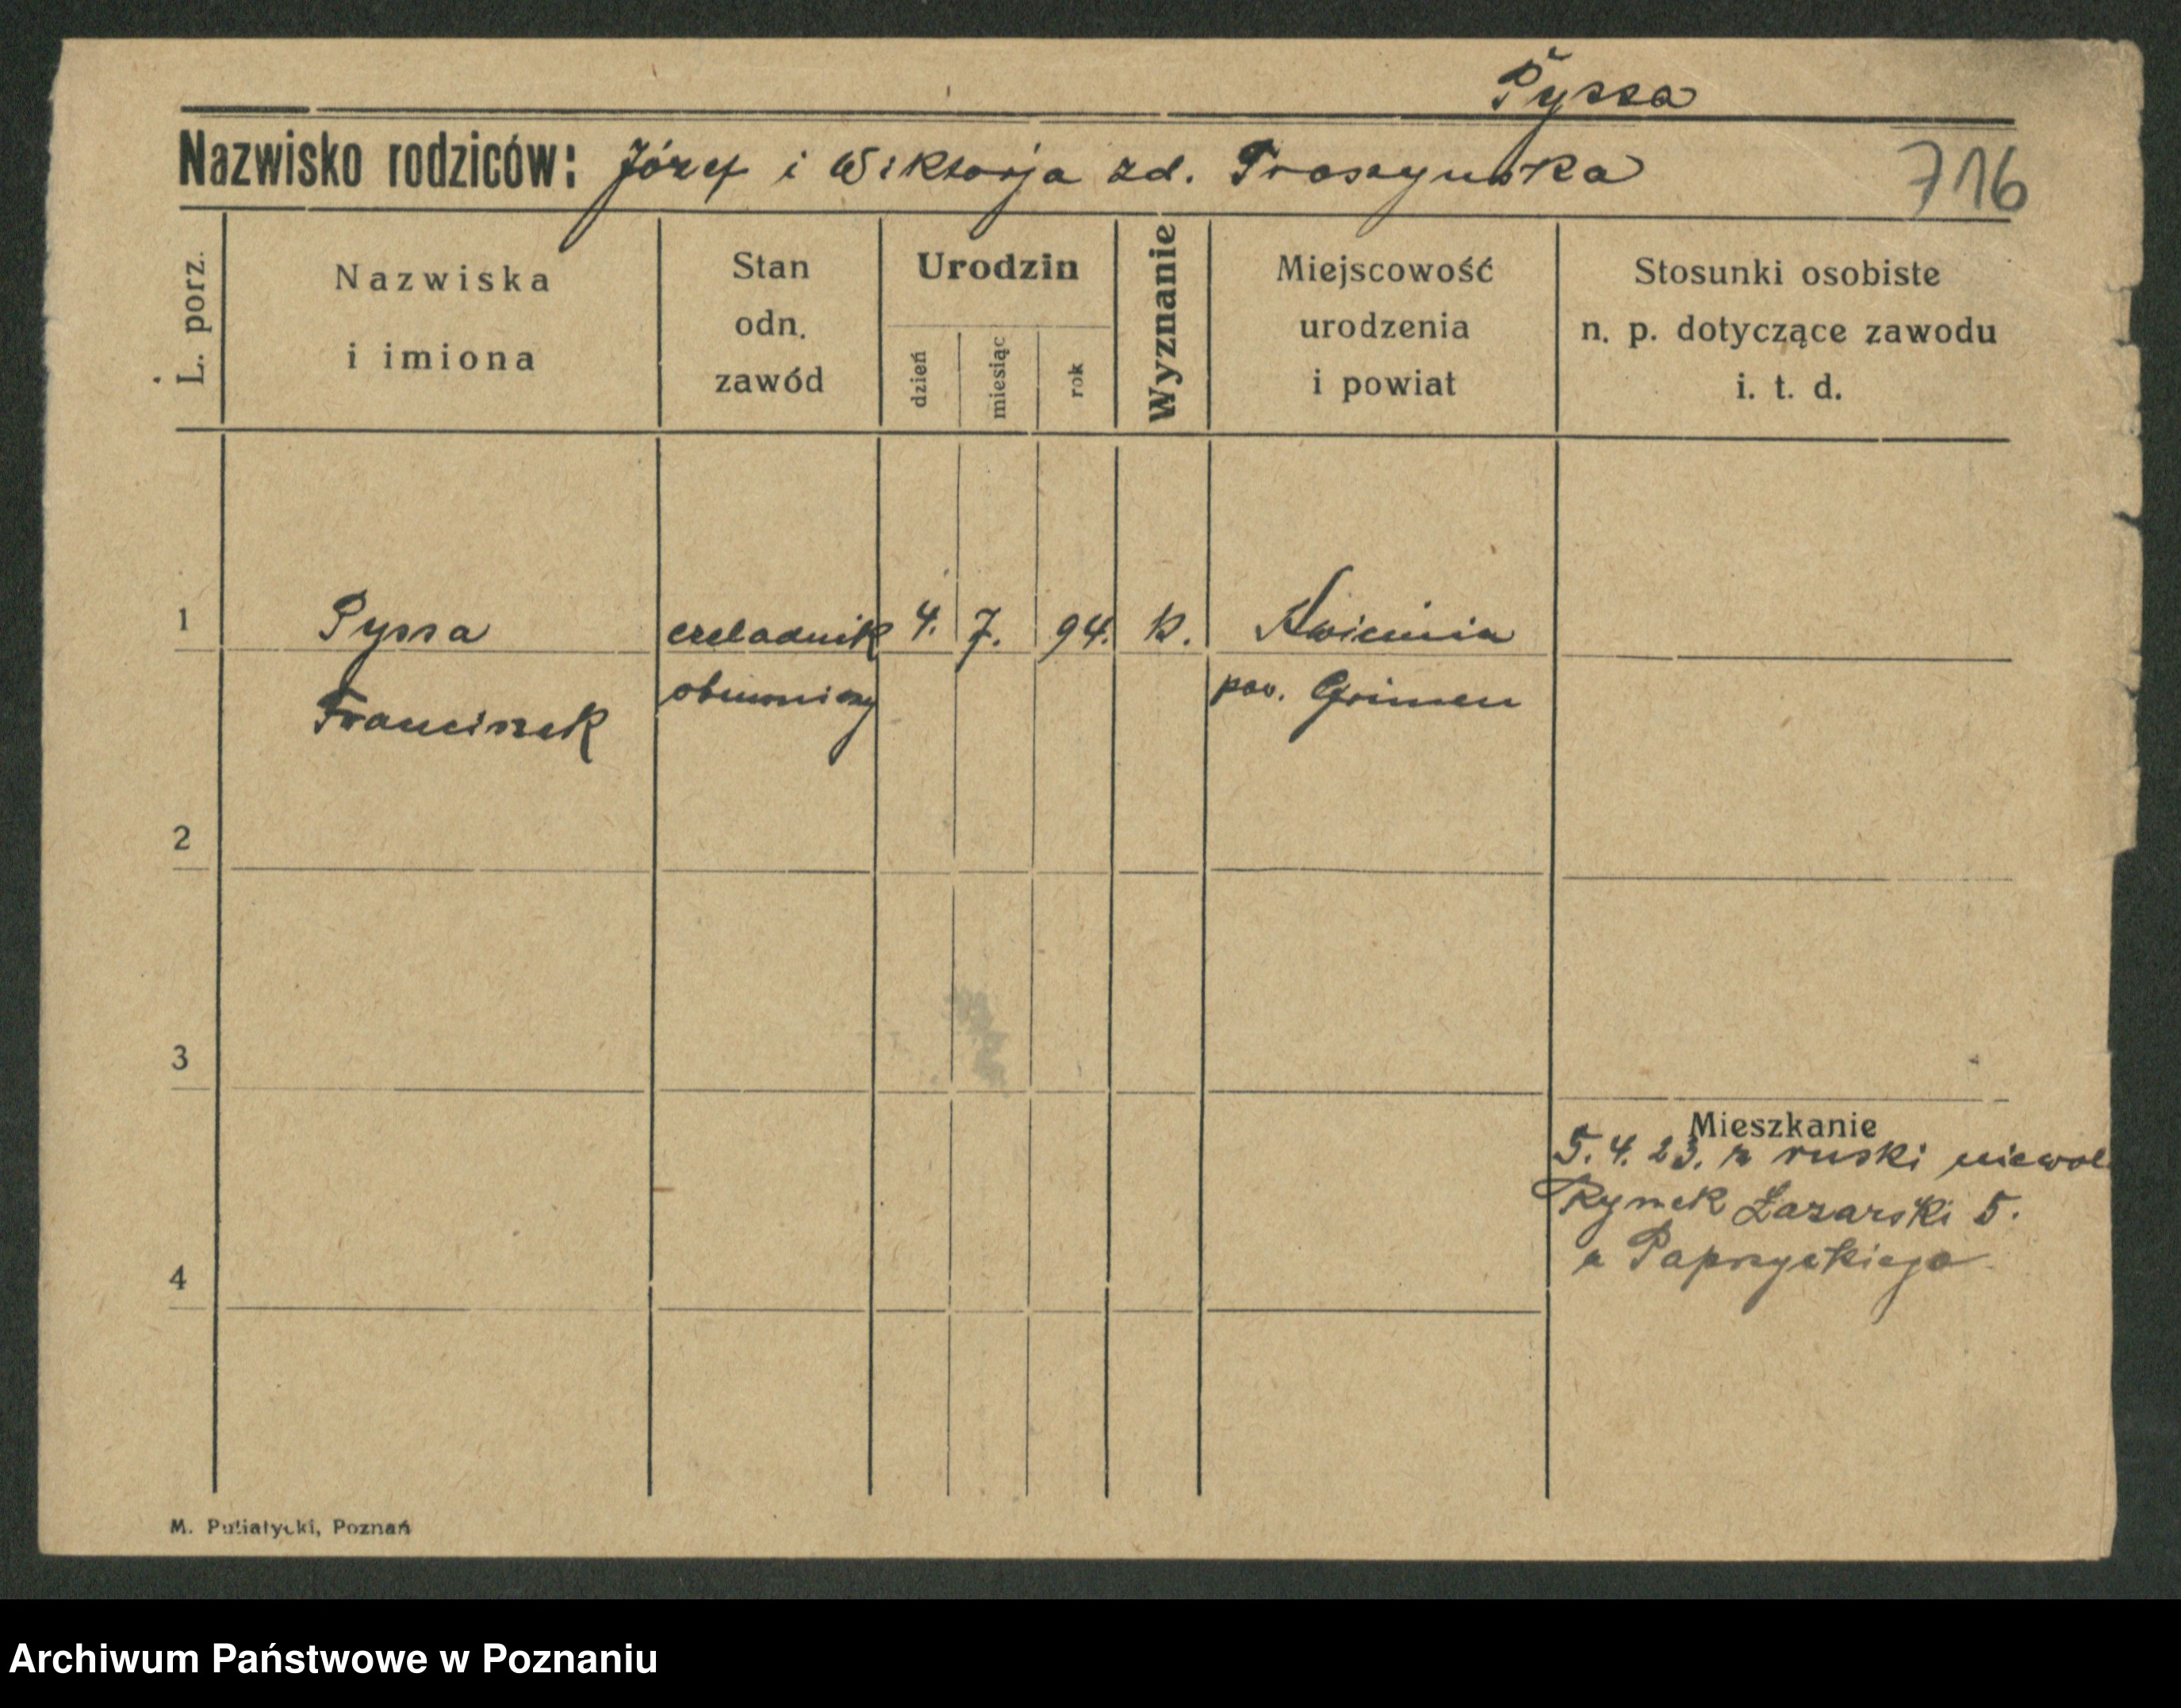 Pyssa
Nazwisko rodziców: Józef i Wiktorja zd. Troszynska
716
L. porz.
Nazwiska
i imiona
Stan
odn.
zawód
Urodzin
dzień
miesiąc
rok
Wyznanie
Miejscowość
urodzenia
i powiat
Stosunki osobiste
n. p. dotyczące zawodu
i. t. d.
1 Pyssa czeladnik 4. 7. 94. k.
Franciszek pow. Grimmen
2
3
4
Mieszkanie
5. 4. 23. z ruski niewol
Rynek Łazarski 5.
u Paprzyckiego
M. Putiatycki, Poznań
Archiwum Państwowe w Poznaniu